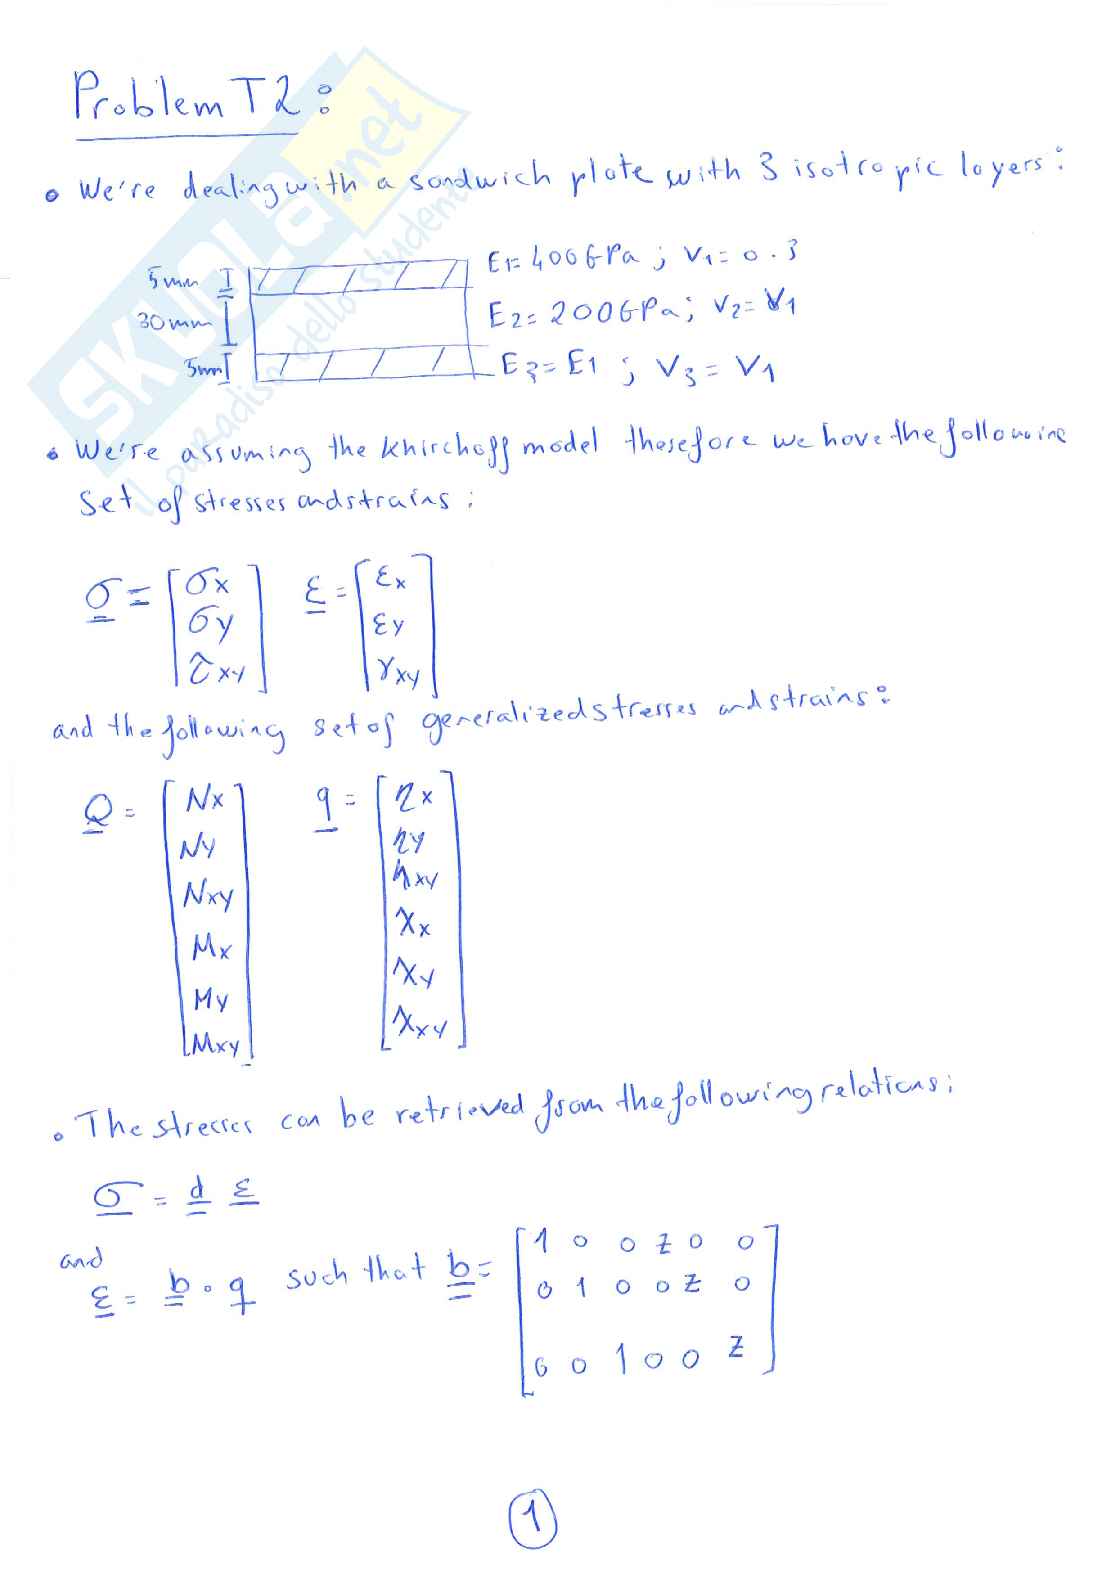 Problem T2:
• We're dealing with a sandwich plate with 3 isotropic layers:
5mm E1= 400GPa ; ν1= 0.3
30mm E2= 200GPa; ν2= ν1
5mm E3= E1 ; ν3= ν1
• We're assuming the khirchoff model therefore we have the following
set of stresses and strains:
σ = [σx σy τxy] ε = [εx εy γxy]
and the following set of generalized stresses and strains:
Q = [Nx Ny Nxy Mx My Mxy] q = [ηx ηy ηxy χx χy χxy]
• The stresses can be retrieved from the following relations:
σ = d ε
and
ε = b • q such that b = [1 0 0 z 0 0
0 1 0 0 z 0
0 0 1 0 0 z]
1
SKUOLA.net
il paradiso dello studente